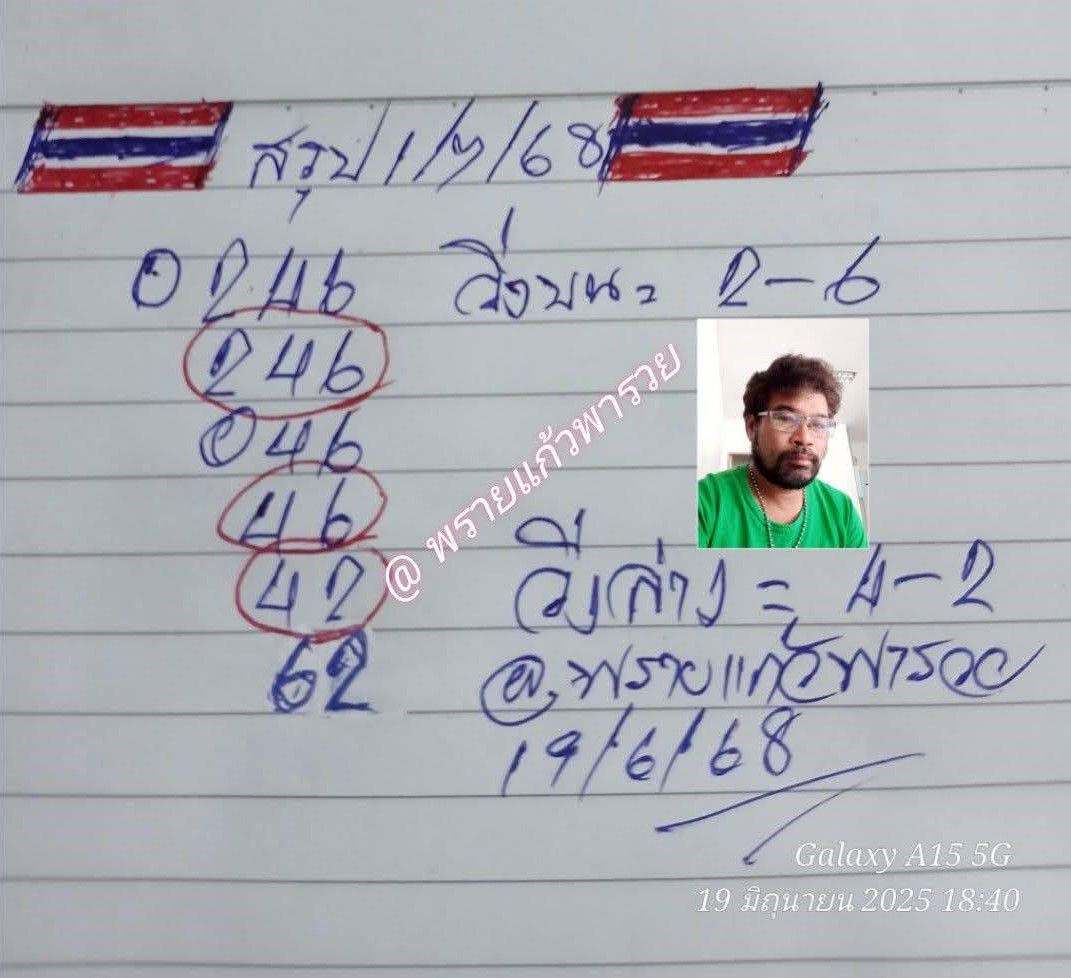 สรุป 1/7/68
0246 วิ่งบน = 2-6
246
046
46
@ พรายแก้วพารวย
42 วิ่งล่าง = 4-2
62 @. พรายแก้วพารวย
19/6/68
Galaxy A15 5G
19 มิถุนายน 2025 18:40